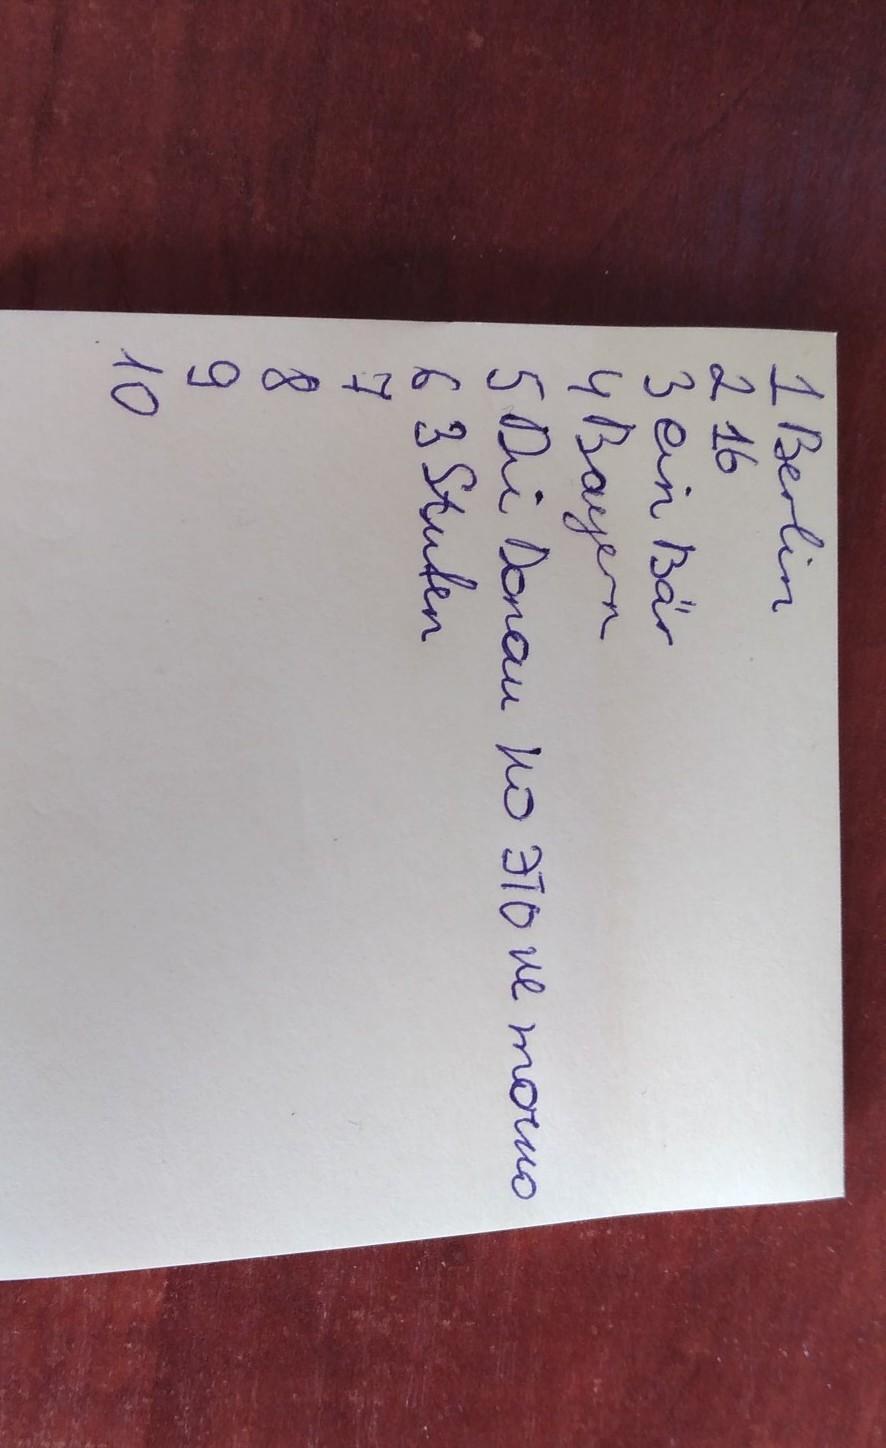 1 Berlin
2 16
3 ein Bär
4 Bayern
5 Di Donau но это не точно
6 3 Stunden
7
8
9
10